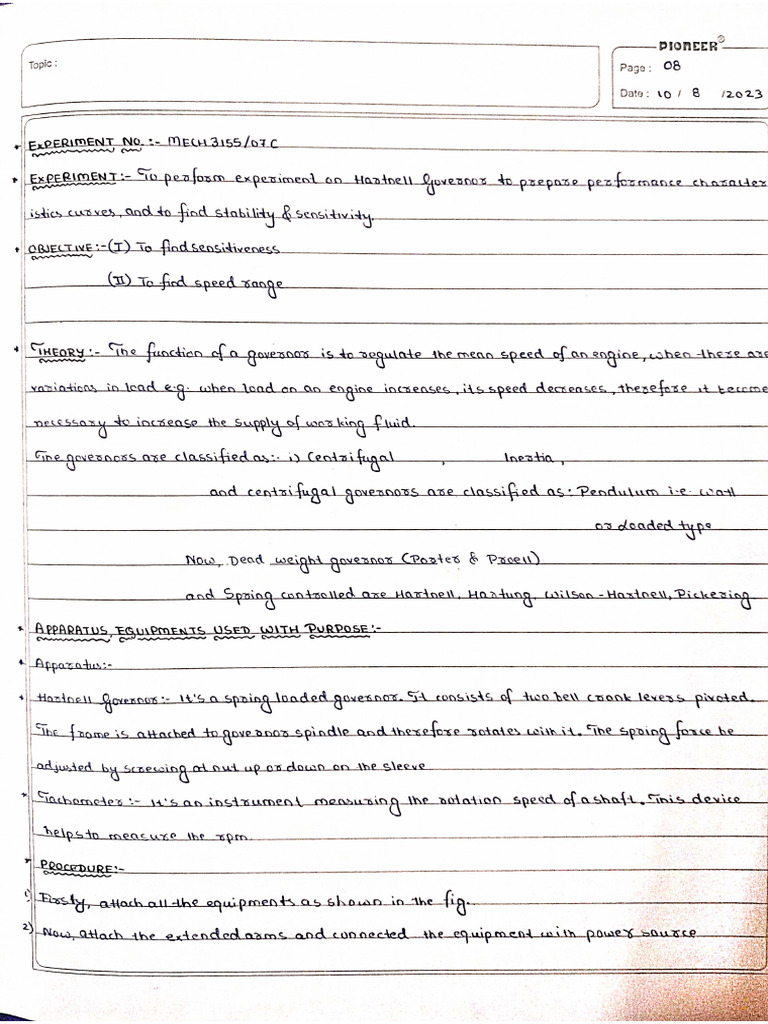 PIONEER®
Topic :
Page : 08
Date : 10 / 8 /2023
EXPERIMENT NO. :- MECH3155/07C
EXPERIMENT:- To perform experiment on Hartnell Governor to prepare performance character
istics curves, and to find stability & sensitivity.
OBJECTIVE:-(I) To find sensitiveness
(II) To find speed range
THEORY:- The function of a governor is to regulate the mean speed of an engine, when there are
variations in load e.g. when load on an engine increases, its speed decreases, therefore it become
necessary to increase the supply of working fluid.
The governors are classified as:- i) Centrifugal , Inertia,
and centrifugal governors are classified as: Pendulum i.e. watt
or Loaded type
Now, Dead weight governor (Porter & Proell)
and Spring controlled are Hartnell, Hartung, Wilson-Hartnell, Pickering
APPARATUS, EQUIPMENTS USED WITH PURPOSE:-
Apparatus:-
Hartnell Governor:- It's a spring loaded governor. It consists of two bell crank levers pivoted.
The frame is attached to governor spindle and therefore rotates with it. The spring force be
adjusted by screwing at nut up or down on the sleeve
Tachometer:- It's an instrument measuring the rotation speed of a shaft. This device
helps to measure the rpm.
PROCEDURE:-
1) Firstly, attach all the equipments as shown in the fig.
2) Now, attach the extended arms and connected the equipment with power source